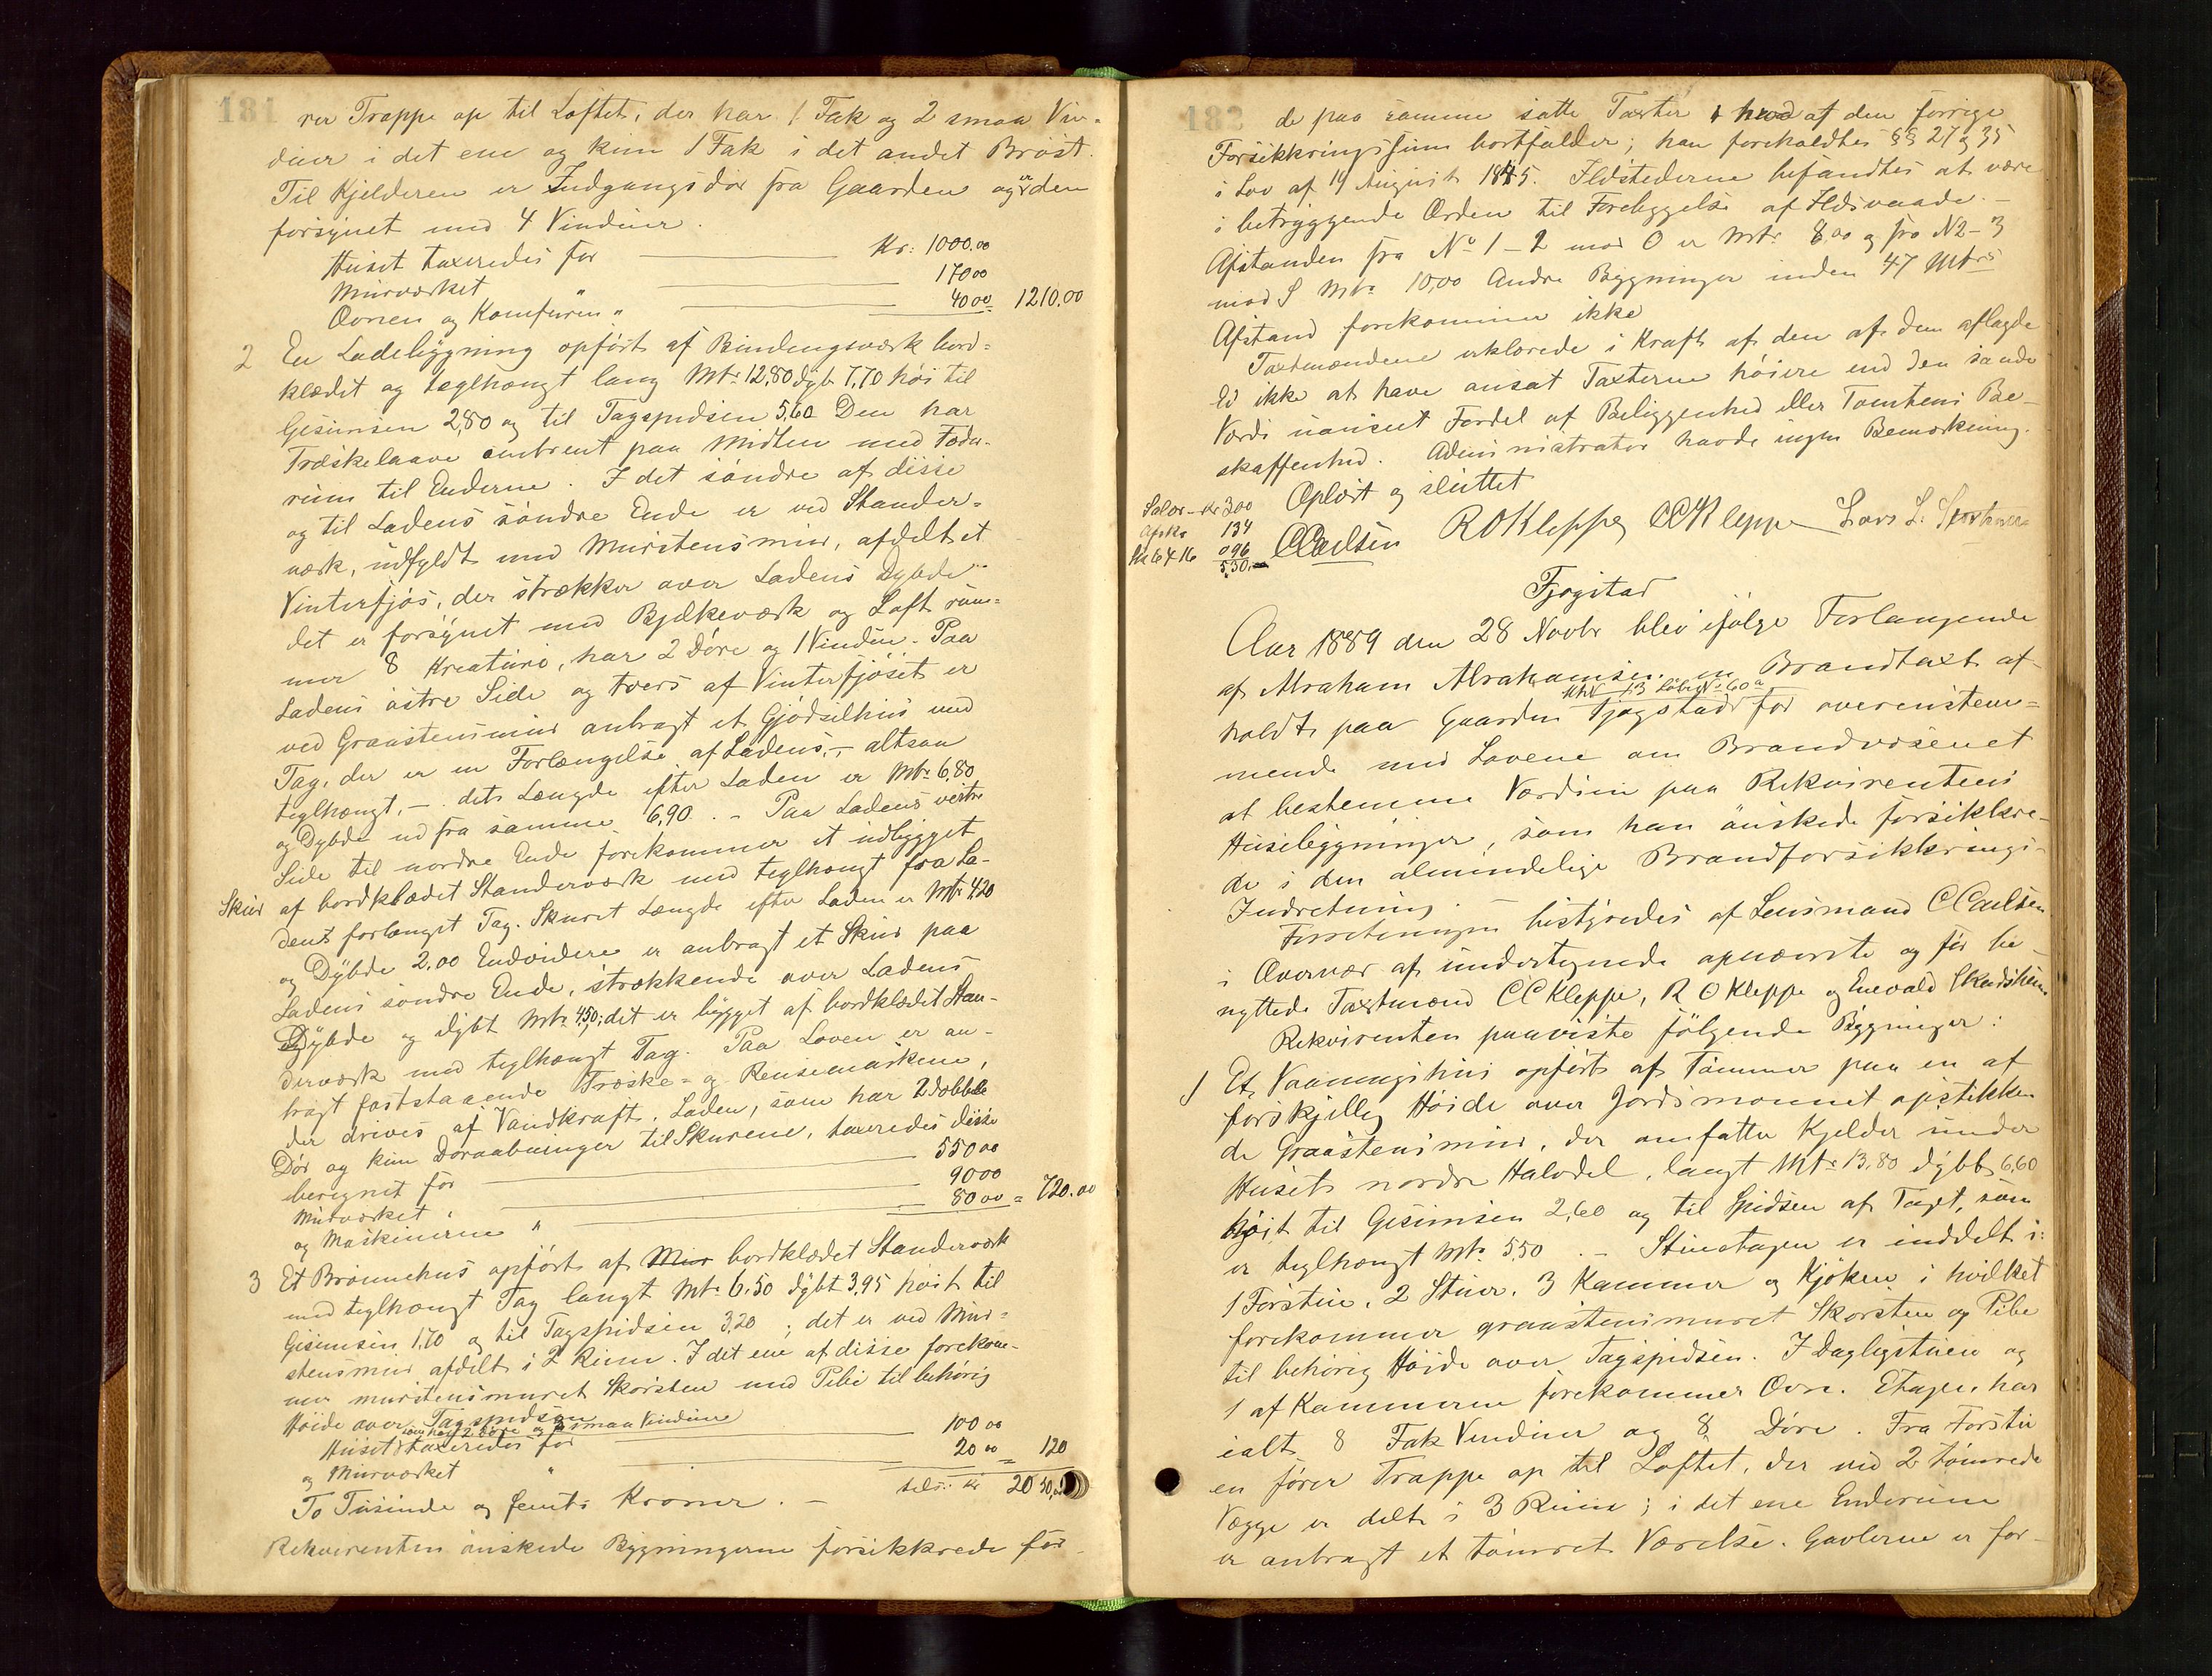 181
rer Trappe op til Loftet, der har 1 Fak og 2 smaa Vin-
duer i det ene og kun 1 Fak i det andet Bröst.
Til Kjelderen er Indgangsdör fra Gaarden og er den
forsynet med 4 Vinduer.
Huset taxeredes for Kr: 1000.00
Murværket 170 00
Ovnen og Komfuren " 40 00 1210.00
2 En Ladebygning opfört af Bindingsværk bord-
klædet og teglhængt lang Mtr 12,80 dyb 7,70 höi til
Gesimsen 2,80 og til Tagspidsen 5,60 Den har
Træskelaave omtrent paa Midten med Foder-
rum til Enderne. I det söndre af disse
og til Ladens söndre Ende er ved Stander-
værk, udfyldt med Murstensmur, afdelt et
Vinterfjös, der strækker over Ladens Dybde
det er forsynet med Bjelkeværk og Loft rum-
mer 8 Kreature, har 2 Döre og 1 Vindue. Paa
Ladens östre Side og tvers af Vinterfjöset er
ved Graastensmur anbragt et Gjödselhus med
Tag, der er en Forlængelse af Ladens, – altsaa
teglhængt, – dets Længde efter Laden er Mtr 6,80
og Dybde ud fra samme 6,90. – Paa Ladens vestre
Side til nordre Ende forekommer et udbygget
Skur af bordklædet Standerværk med teglhængt fra La-
dens forlænget Tag. Skurets Længde efter Laden er Mtr 4,20
og Dybde 2,00 Endvidere er anbragt et Skur paa
Ladens söndre Ende, strækkende over Ladens
Dybde og dybt Mtr 4,50; det er bygget af bordklædet Stan-
derværk med teglhængt Tag. Paa Loven er an-
bragt faststaaende Træske- og Rensemaskine,
der drives af Vandkraft. Laden, som har 2 dobbelte
Dör og kun Döraabninger til Skurene, taxeredes disse
beregnet for 550 00
Murværket " 90 00
og Maskinerne " 80 00 = 720.00
3 Et Brönnehus opfört af Mur bordklædet Standerværk
med teglhængt Tag langt Mtr 6,50 dybt 3,95 höit til
Gesimsen 1,70 og til Tagspidsen 3,20; det er ved Mur-
stensmur afdelt i 2 Rum. I det ene af disse forekom-
mer murstensmuret Skorsten med Pibe til behörig
Höide over Tagspidsen
som har 2 Döre og 2 smaa Vinduer
Huset taxeredes for 100 00
og Murværket " 20 00 = 120
To Tusinde og femti Kroner. – tils: Kr 2050,00
Rekvirenten önskede Bygningerne forsikkrede for
182
de paa samme satte Taxter & hvad af den forrige
Forsikkringssum bortfalder; han foreholdtes §§ 27 og 35
i Lov af 19 August 1845. Ildstederne befandtes at være
i betryggende Orden til Forebyggelse af Ildsvaade. –
Afstanden fra No 1 – 2 mod O er Mtr 8,00 og fra N2 – 3
mod S Mtr 10,00 Andre Bygninger inden 47 Mtrs
Afstand forekommer ikke
Taxtmændene erklærede i Kraft af den af dem aflagde
Ed ikke at have ansat Taxterne höiere end den sande
Værdi uanseet Fordel af Beliggenhed eller Tomtens Be-
skaffenhed. Administrator havde ingen Bemærkning.
Oplæst og sluttet
Salær – Kr 3 00
Afskr 1 34
0 96
5,30
CCarlsen R O Kleppe CCKleppe Lars L.
Tjøgstad
Aar 1889 den 28 Novbr blev ifölge Forlangende
af Abraham Abrahamsen en Brandtaxt af-
MNo 13 LöbeNo 60a
holdt paa Gaarden Tjøgstad for overensstem-
mende med Lovene om Brandvæsenet
at bestemme Værdien paa Rekvirentens
Husebygninger, som han önskede forsikkre-
de i den almindelige Brandforsikkrings-
Indretning. –
Forretningen bestyredes af Lensmand CCarlsen
i Overvær af undertegnede opnævnte og för be-
nyttede Taxtmænd CCKleppe, R O Kleppe og Enevald Skadsheim
Rekvirenten paaviste fölgende Bygninger:
1 Et Vaaningshus opfört af Tömmer paa en af
forskjellig Höide over Jordsmonnet opstikken-
de Graastensmur, der omfatter Kjelder under
Husets nordre Halvdel, langt Mtr 13,80 dybt 6,60
höit til Gesimsen 2,60 og til Spidsen af Taget, som
er teglhængt Mtr 5,50. – Stuestagen er inddelt i:
1 Forstue, 2 Stuer, 3 Kammer og Kjöken i hvilket
forekommer graastensmuret Skorsten og Pibe
til behörig Höide over Tagspidsen. I Dagligstuen og
1 af Kammerne forekommer Ovn. Etagen har
ialt 8 Fak Vinduer og 8 Döre. Fra Forstu-
en förer Trappe op til Loftet, der ved 2 tömrede
Vægge er delt i 3 Rum; i det ene Enderum
er anbragt et tömret Værelse. Gavlerne er for-